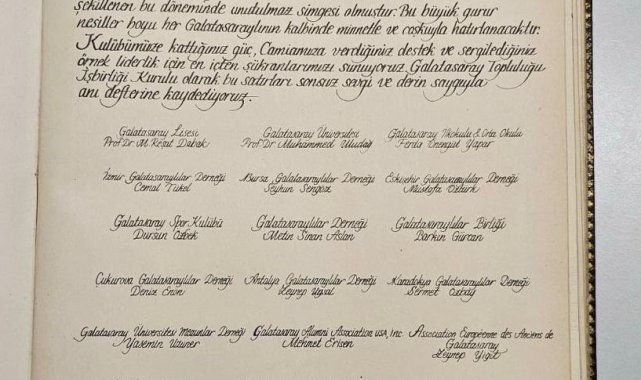 şekillenen bu döneminde unutulmaz simgesi olmuştur. Bu büyük gurur
nesiller boyu her Galatasaraylının kalbinde minnetle ve coşkuyla hatırlanacaktır.
Kulübümüze kattığınız güç, Camiamıza verdiğiniz destek ve sergilediğiniz
örnek liderlik için en içten şükranlarımızı sunuyoruz. Galatasaray Topluluğu
İşbirliği Kurulu olarak bu satırları sonsuz sevgi ve derin saygıyla
anı defterine kaydediyoruz.
Galatasaray Lisesi
Prof Dr. M. Reşat Dabak
Galatasaray Üniversitesi
Prof Dr Muhammed Uludağ
Galatasaray İlkokulu & Orta Okulu
Ferda Önengüt Yapar
İzmir Galatasaraylılar Derneği
Cemal Tükel
Bursa Galatasaraylılar Derneği
Seyhun Şengöz
Eskişehir Galatasaraylılar Derneği
Mustafa Öztürk
Galatasaray Spor Kulübü
Dursun Özbek
Galatasaraylılar Derneği
Metin Sinan Aslan
Galatasaraylılar Birliği
Barkın Gürcan
Çukurova Galatasaraylılar Derneği
Deniz
Antalya Galatasaraylılar Derneği
Zeynep Uysal
Kapadokya Galatasaraylılar Derneği
Sermet
Galatasaray Üniversitesi Mezunlar Derneği
Yasemin Üzüner
Galatasaray Alumni Association USA, Inc.
Mehmet Erişen
Association Européenne des Anciens de
Galatasaray
Zeynep Yiğit